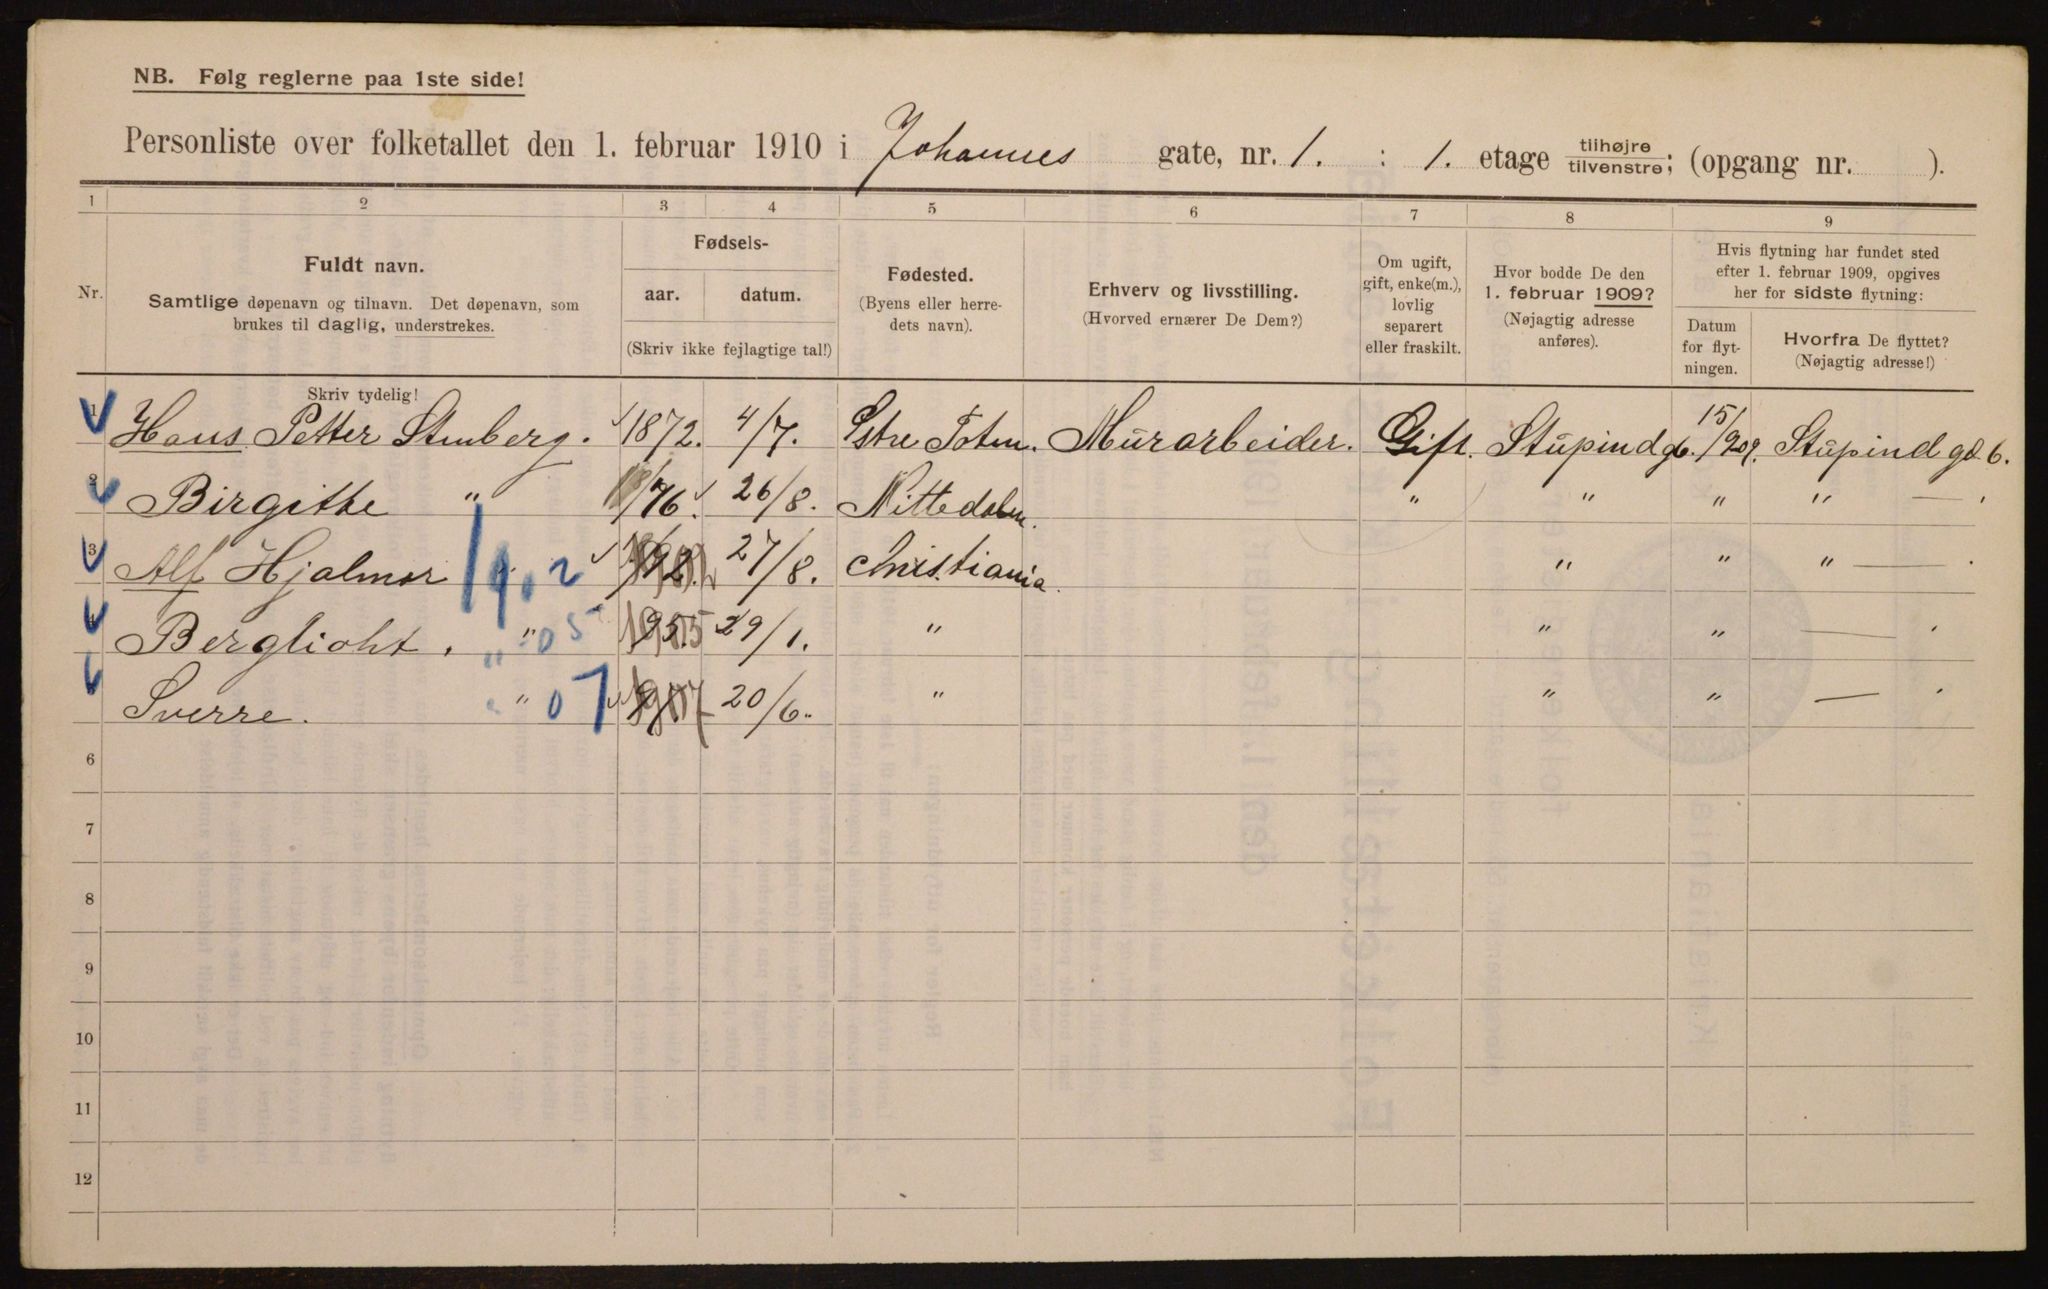 NB. Følg reglerne paa 1ste side!
Personliste over folketallet den 1. februar 1910 i Johannes gate, nr. 1. : 1. etage tilhøjre tilvenstre; (opgang nr. ).
1 2 3 4 5 6 7 8 9
Nr.
Fuldt navn.
Samtlige døpenavn og tilnavn. Det døpenavn, som
brukes til daglig, understrekes.
Skriv tydelig!
Fødsels-
aar. datum.
(Skriv ikke fejlagtige tal!)
Fødested.
(Byens eller herre-
dets navn).
Erhverv og livsstilling.
(Hvorved ernærer De Dem?)
Om ugift,
gift, enke(m.),
lovlig
separert
eller fraskilt.
Hvor bodde De den
1. februar 1909?
(Nøjagtig adresse
anføres).
Hvis flytning har fundet sted
efter 1. februar 1909, opgives
her for sidste flytning:
Datum
for flyt-
ningen.
Hvorfra De flyttet?
(Nøjagtig adresse!)
1 Hans Petter Stenberg. 1872. 4/7. Østre Toten. Mürarbeider. Gift. Stüpindgd 6. 15/9 09. Stüpind gd 6.
2 Birgithe " 76. 26/8. Nittedalen. " " " " — "
3 Alf Hjalmar 1902 27/8. Christiania. " " " —
4 Berglioht. " 05 1905 29/1. " " " —
Sverre. " 07 1907 20/6. " " " —
6
7
8
9
10
11
12